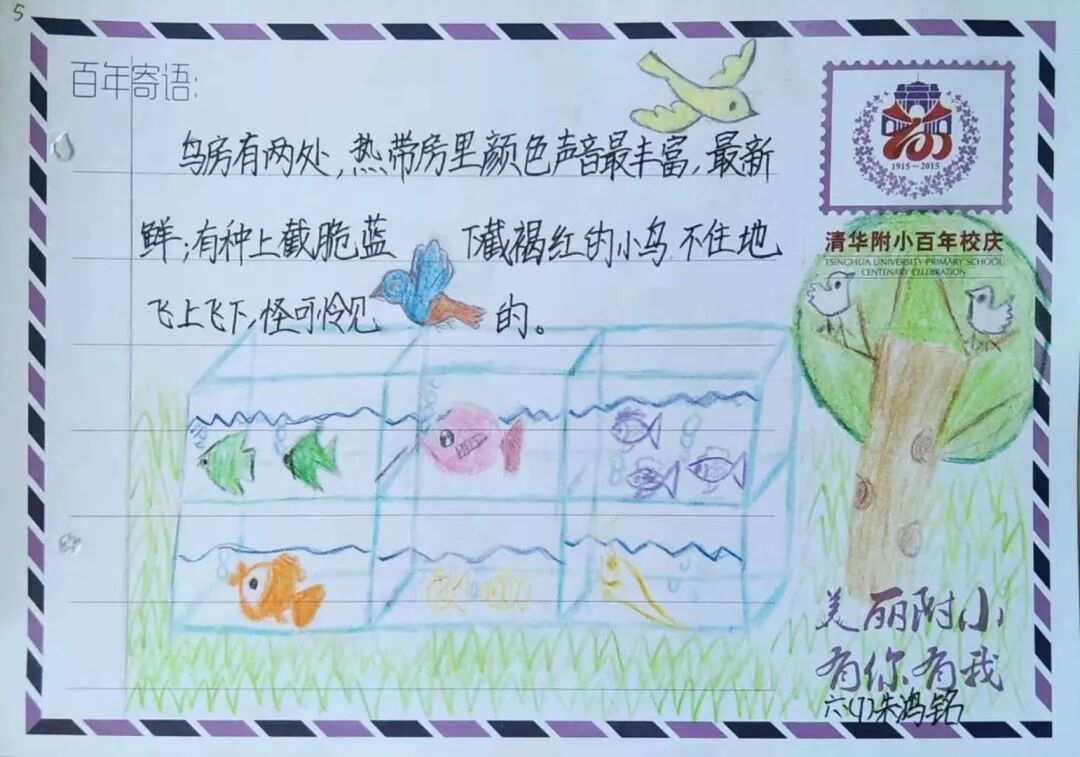 5
百年寄语:
鸟房有两处,热带房里颜色声音最丰富,最新
鲜;有种上截脆蓝 下截褐红的小鸟,不住地
飞上飞下,怪可怜见 的。
1915-2015
清华附小百年校庆
TSINGHUA UNIVERSITY PRIMARY SCHOOL
CENTENARY CELEBRATION
美丽附小
有你有我
六(7)朱鸿铭